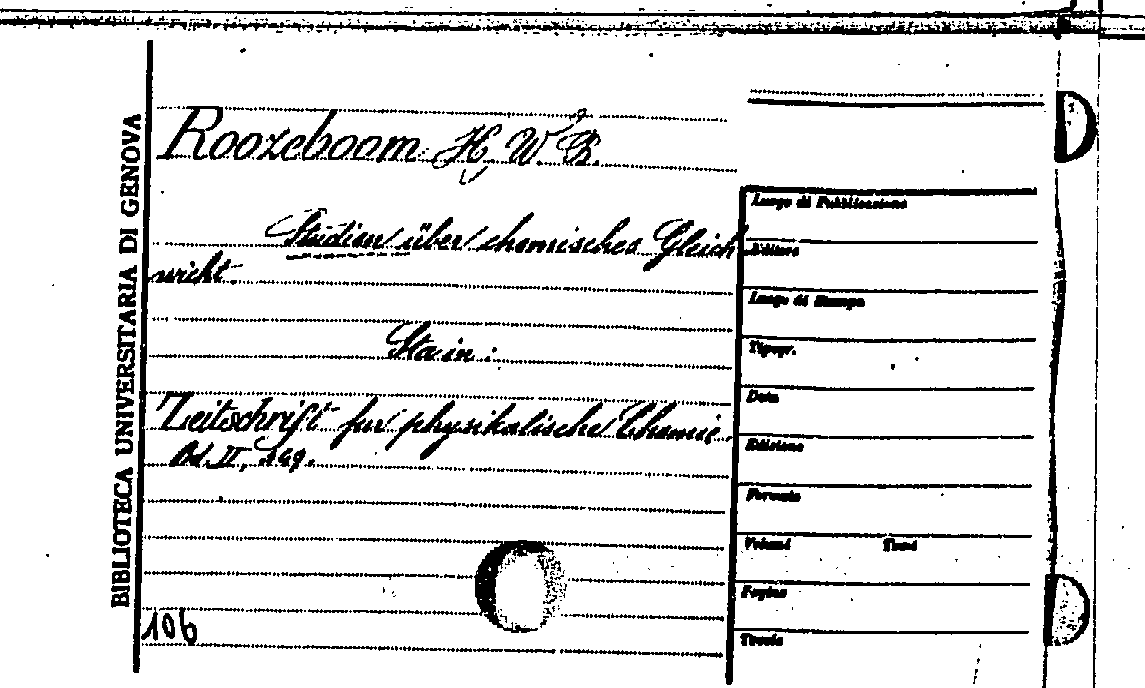 BIBLIOTECA UNIVERSITARIA DI GENOVA
Roozeboom H. W. B.
Studien über chemisches Gleich
wicht
Sta in:
Zeitschrift fur physikalische Chemie.
Bd. II,
106
Luogo di Pubblicazione
Editore
Luogo di Stampa
Tipogr.
Data
Edizione
Formato
Volumi Tomi
Pagine
Tavole